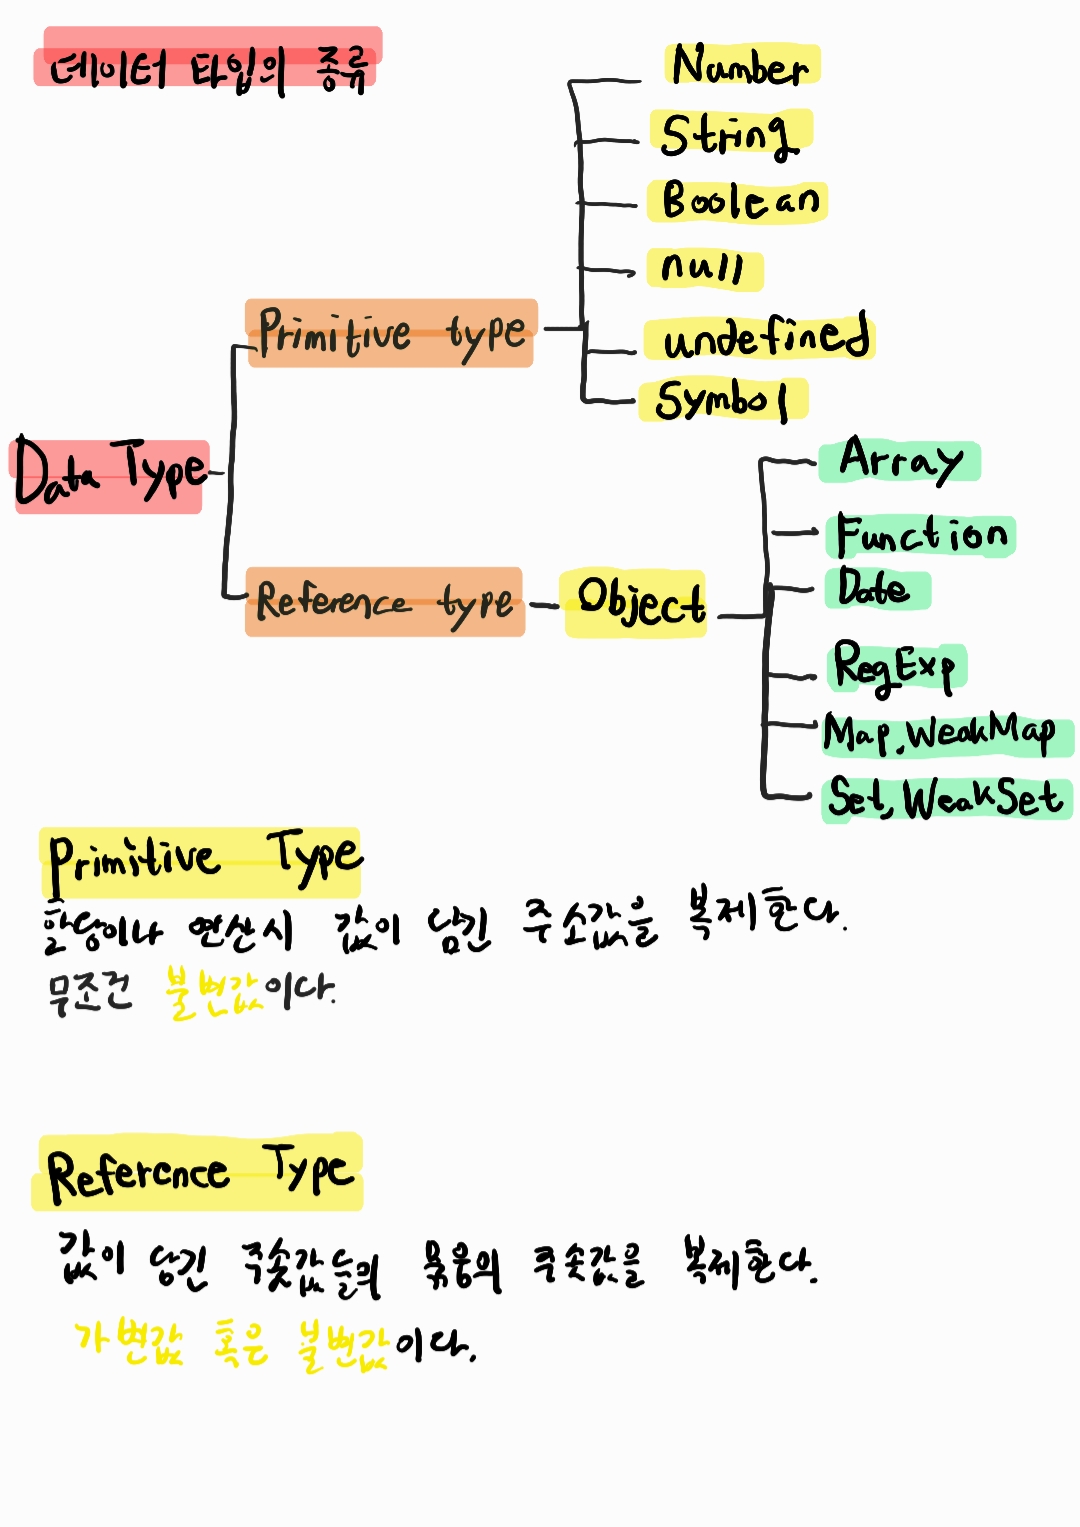 데이터 타입의 종류
Number
String
Boolean
null
undefined
Symbol
Primitive type
Data Type
Reference type
Object
Array
Function
Date
RegExp
Map, WeakMap
Set, WeakSet
Primitive Type
할당이나 연산시 값이 담긴 주소값을 복제한다.
무조건 불변값이다.
Reference Type
값이 담긴 주솟값들의 묶음의 주솟값을 복제한다.
가변값 혹은 불변값이다.